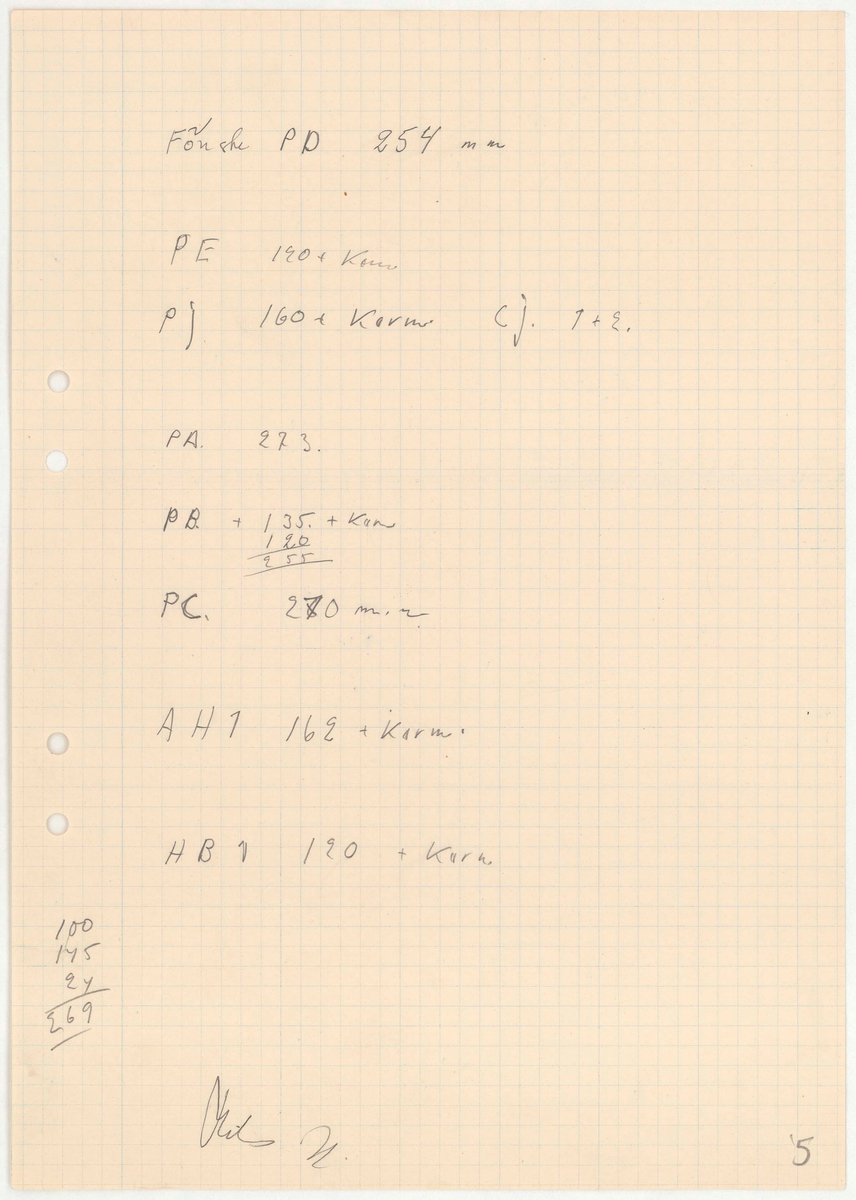 Fönster PD 254 mm
PE 120 + Karm
Pj 160 + Karm. Cj. 1 + 2.
PA. 273.
PB. + 135. + Karm
120
255
PC. 270 m.m
AH1 162 + Karm.
HB1 120 + Karm
100
145
24
269
5